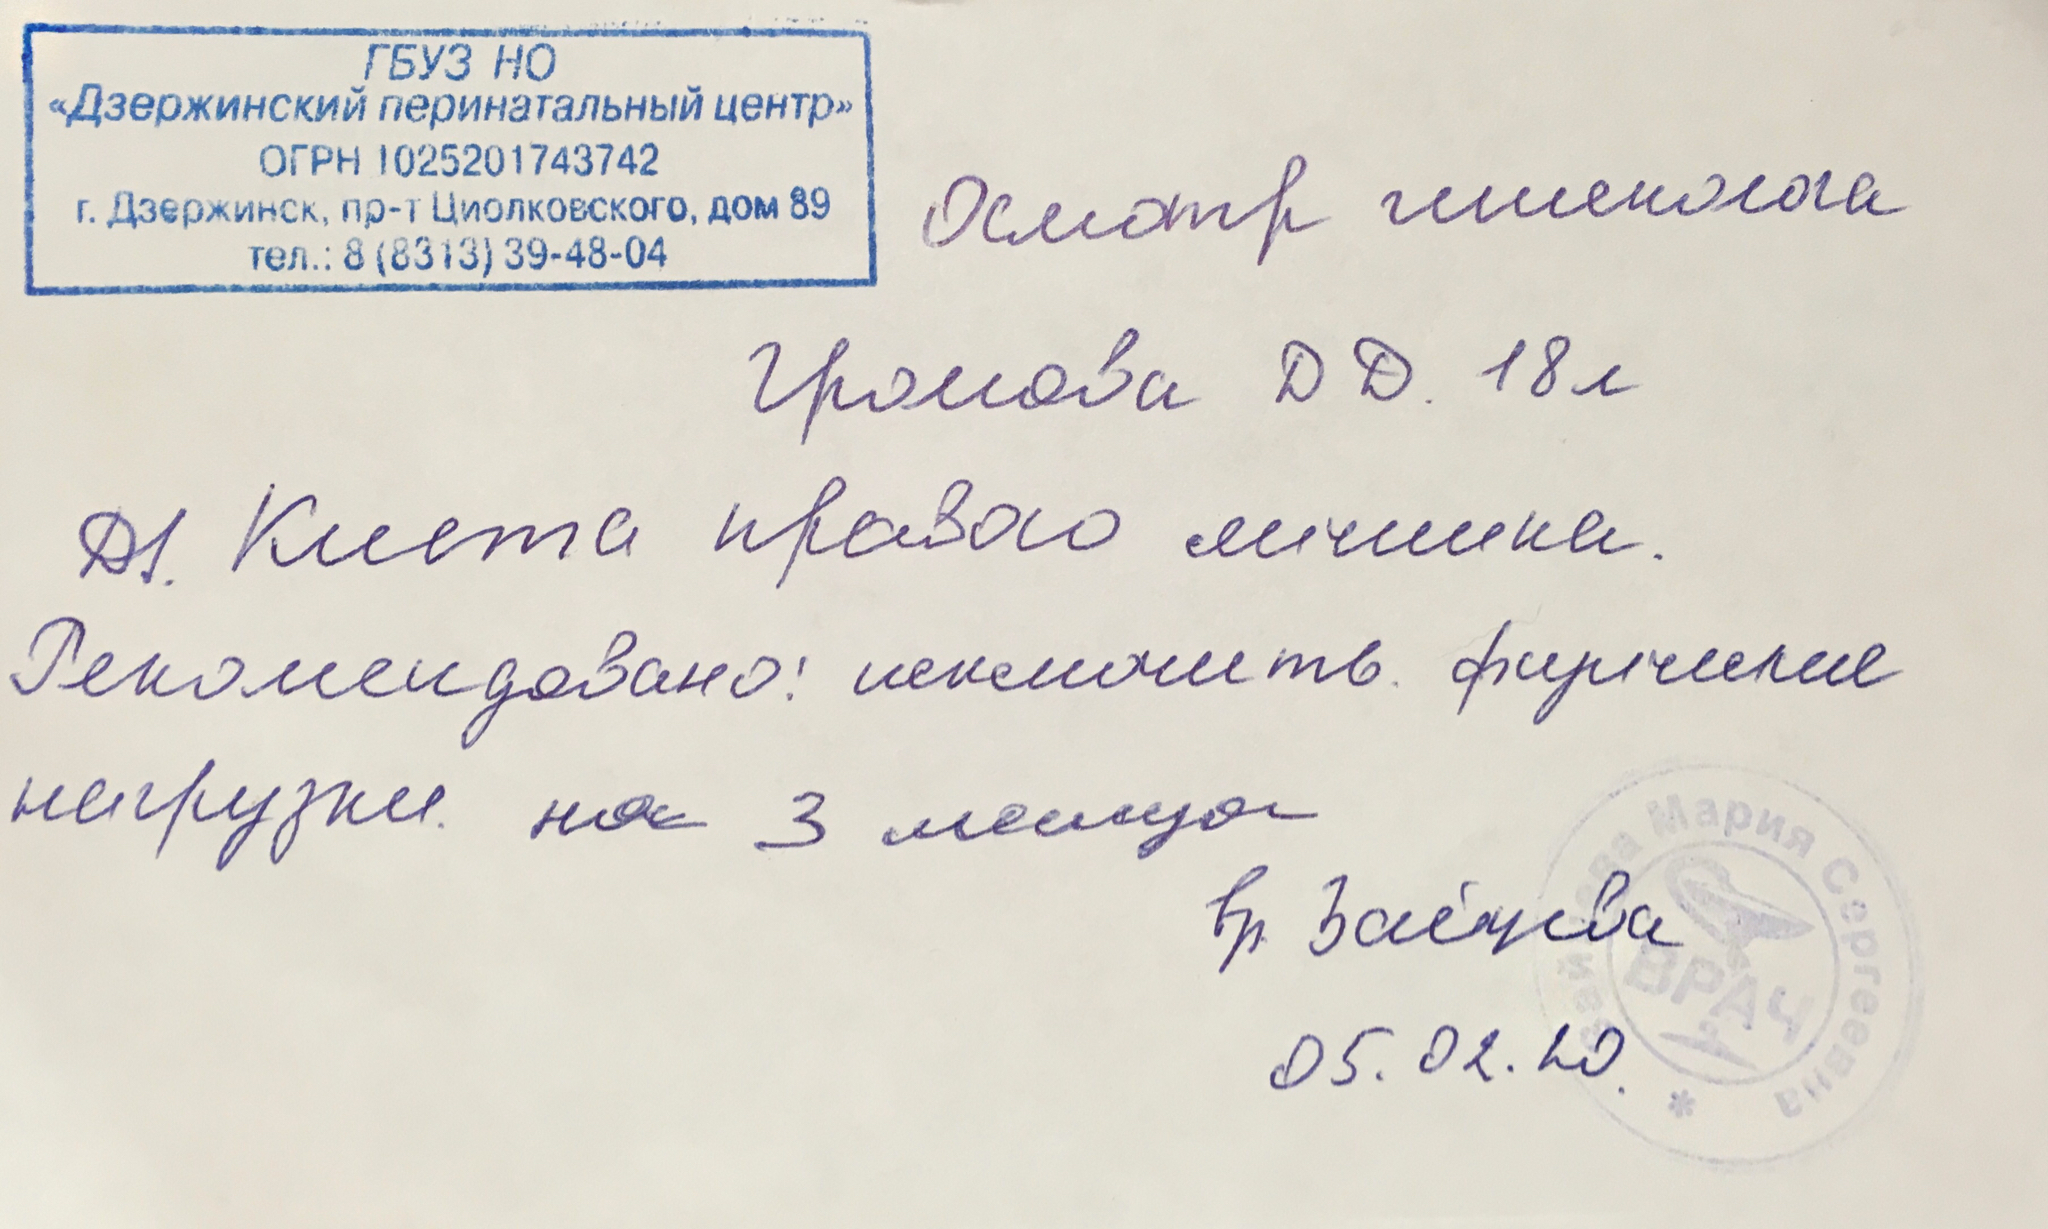 ГБУЗ НО
«Дзержинский перинатальный центр»
ОГРН 1025201743742
г. Дзержинск, пр-т Циолковского, дом 89
тел.: 8 (8313) 39-48-04
Осмотр гинеколога
Громова Д Д. 18 л
Ds. Киста правого яичника.
Рекомендовано: исключить физические
нагрузки на 3 месяца
Вр. Зайцева
05.02.20.
Зайцева Мария Сергеевна *
ВРАЧ